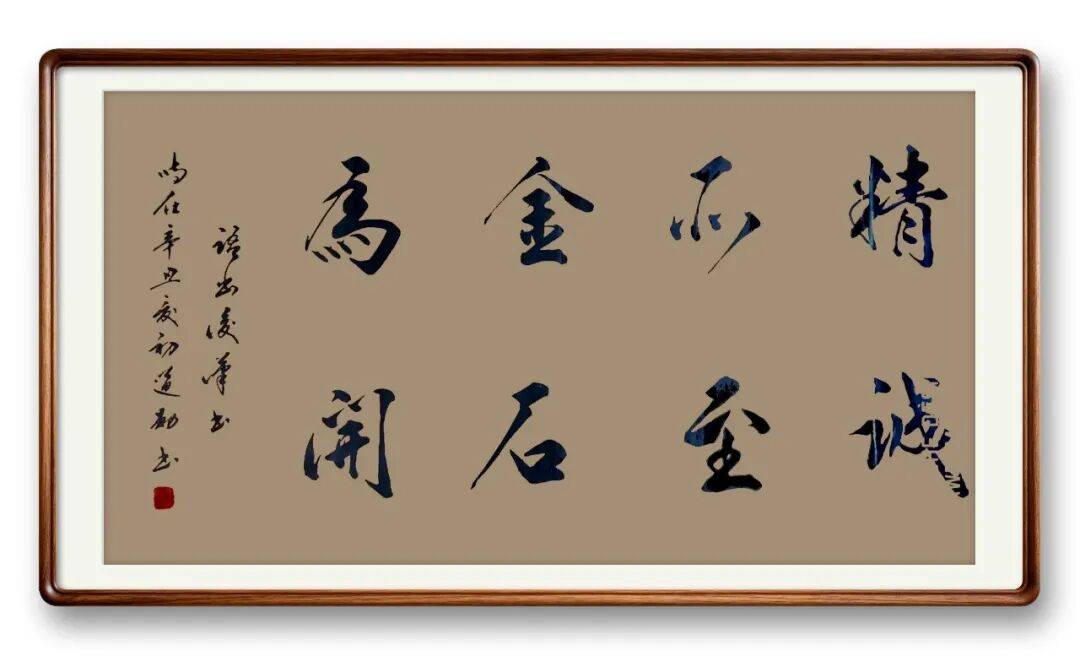 精誠
所至
金石
為開
語出後漢書
時在辛丑夏初道勛書